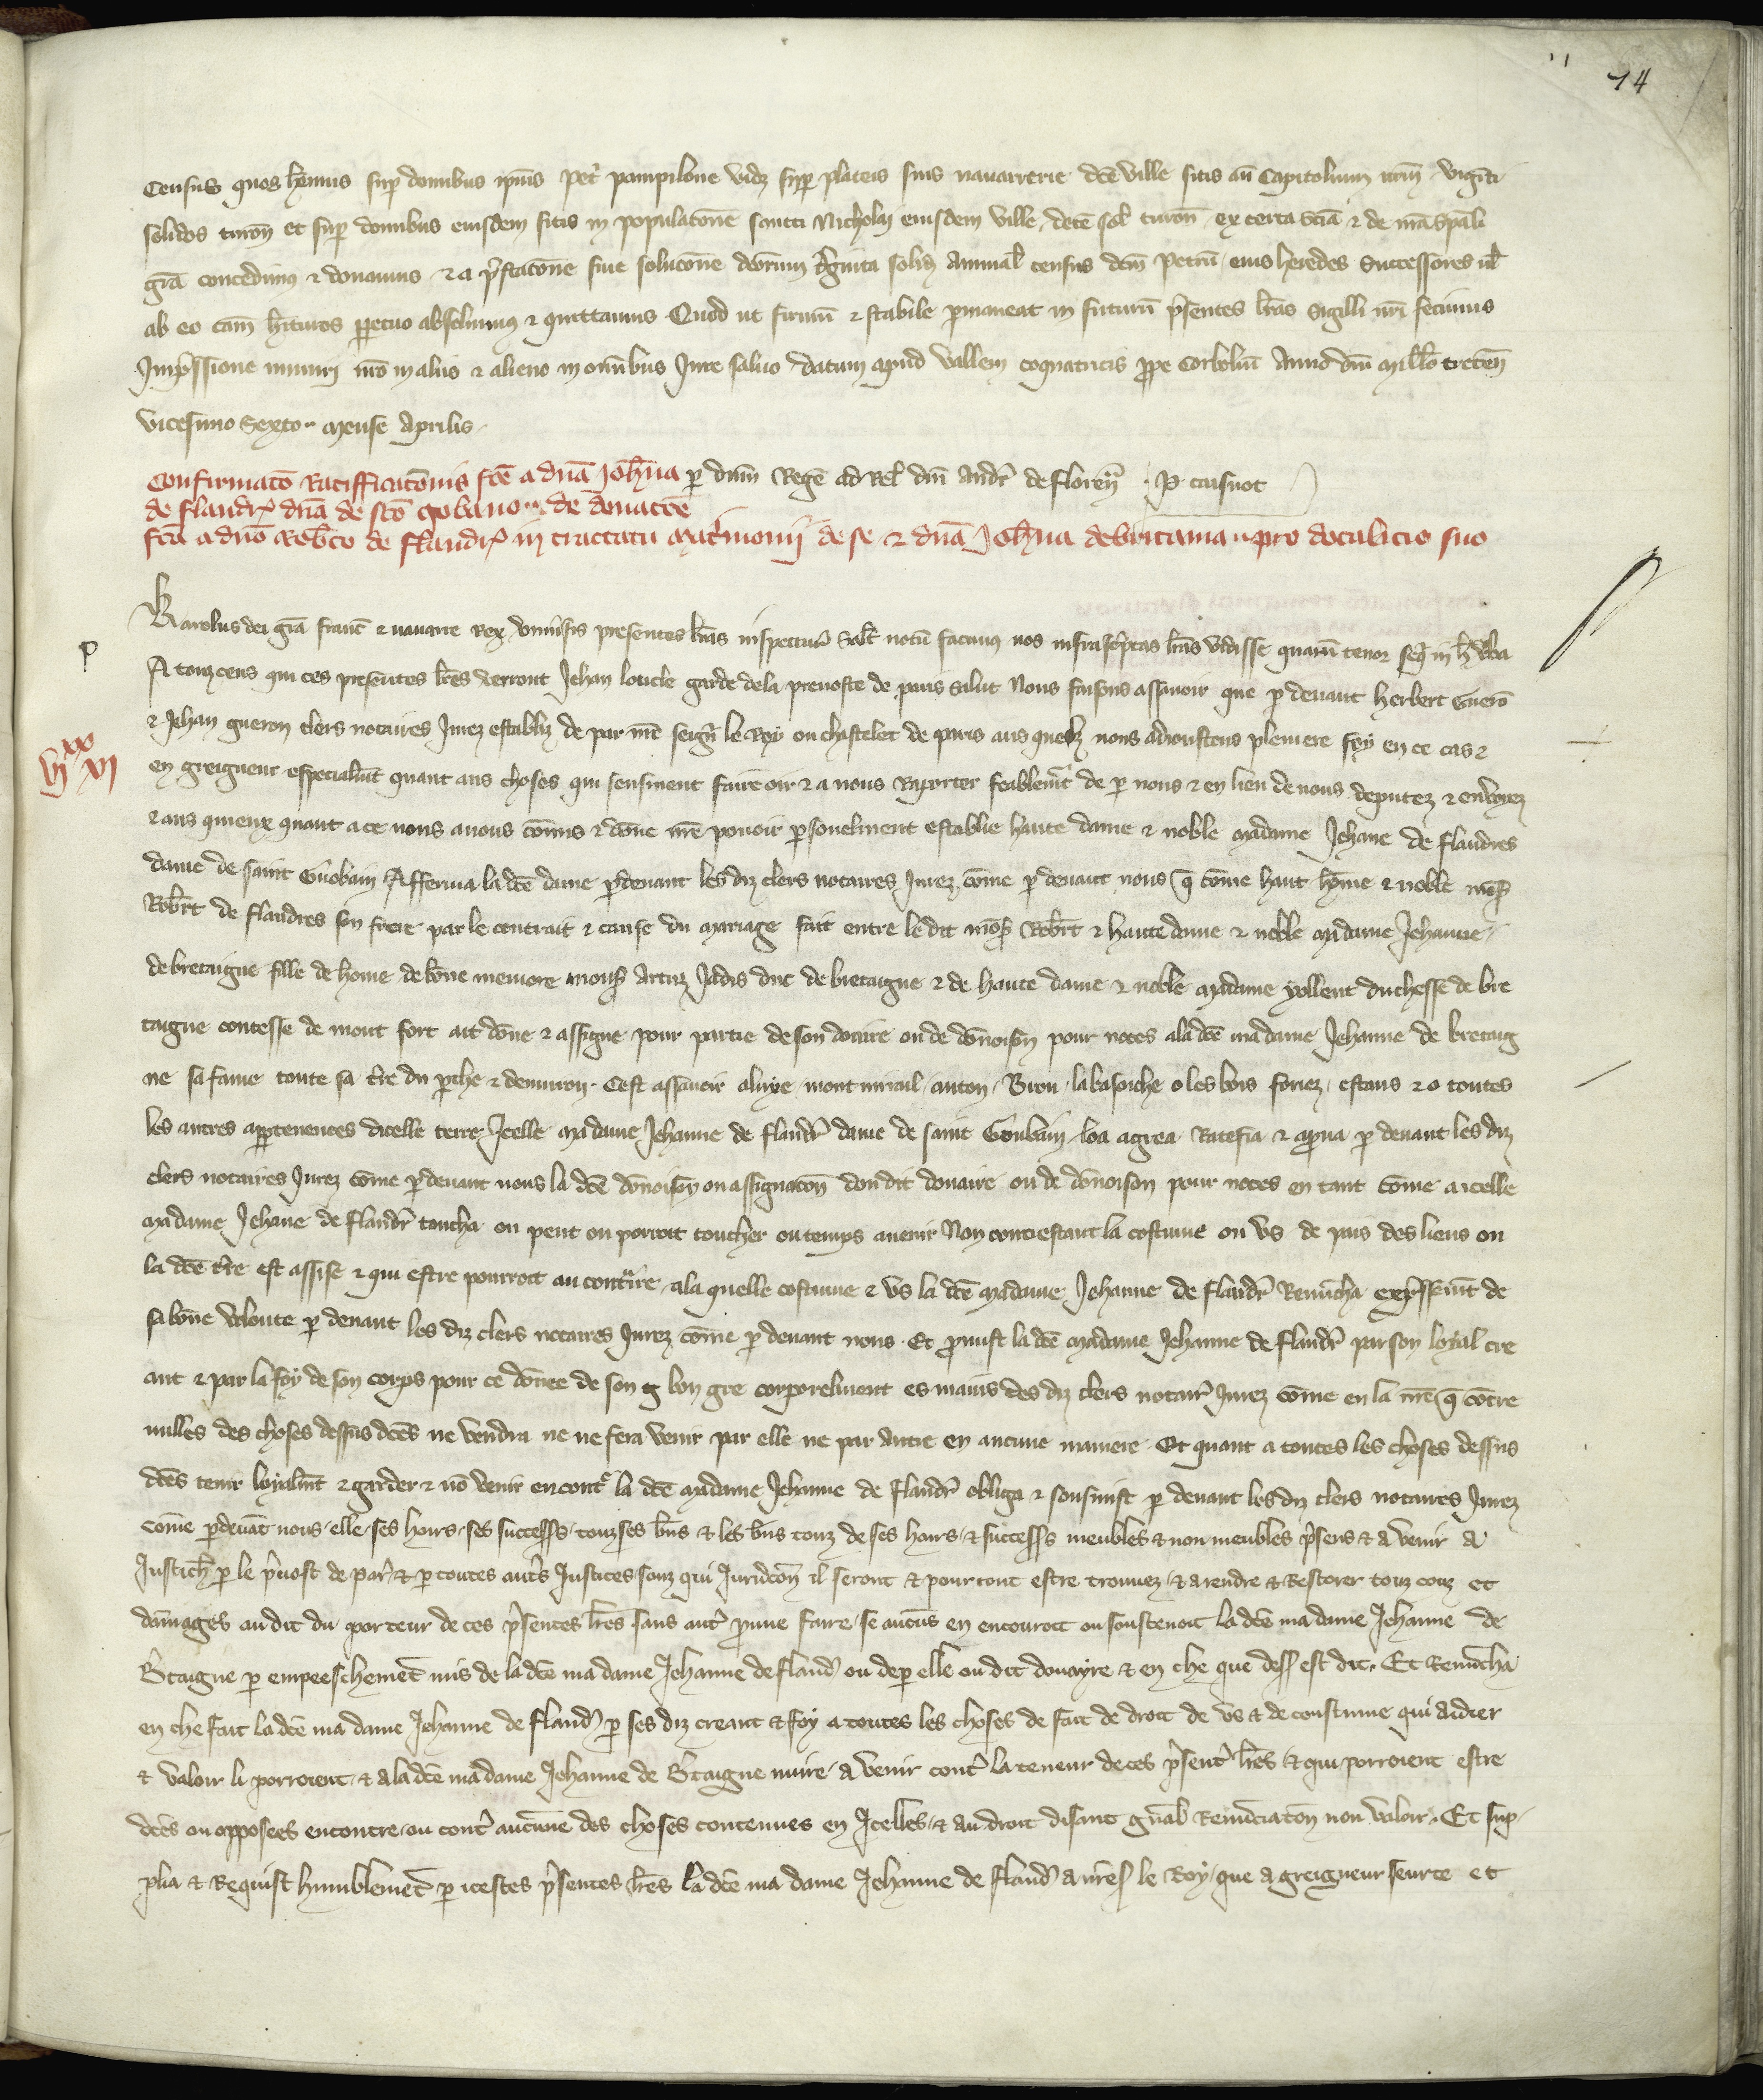 74
census quos hēmus sup domibus ipīus pet' pampilone vidz sup plateis suis navarrerie dce ville sitis an̄ Capitolium nr̄m viginti
solidos turon̄ et sup domibus eiusdem sitis in populatōne sancti Nicholaj eiusdem ville, decē sol turon̄, ex certa sciā & de nr̄a spāli
grā concedimus & donamus & a p̄statōne sive solucōne dc̄orum t'ginta solid annual census dcm̄ Petrū, eius heredes Successores ul
ab eo cam̄ h̄ituros p̄petuo absolvimus & quittamus. Quod ut firmū & stabile p̄maneat in futurū p̄sentes lr̄as Sigilli nr̄i fecimus
Imp̄ssione muniri nr̄o in aliis & alieno in om̄ibus Jure salvo. datum apud Vallem coquatricis ꝓpe Corbolīu Anno dn̄i mill̄o trecen̄
vicesimo Sexto. mense Aprilis.
Confirmatō Ratifficatōnis fcē a dn̄a Joh̄na p dnm̄ Regē ad Rel dn̄i Andr' de Floren̄ . P. caisnot
de flandr' dn̄a de scō gobano .. de donatōe
fcā a dn̄o Rob̄to de flandr' in tractatu mat'imonii de se & dn̄a Joh̄na de britania .. pro dotalicio suo
Karolus dei grā franc̄ & navarre Rex. vniv'sis presentes lr̄as inspectur' Salt̄ notū facimus nos infrasc'ptas lr̄as vidisse quarū tenor seq̄' in h̄ v̄ba
P
A touz ceus qui ces presentes lr̄es verront Jehan loncle garde de la prevoste de paris salut Nous faisons assavoir que p devant herbert Guerō
& Jehan gueron clers notaires Jurez establiz de par mē seign̄ le Roy ou chastelet de paris aus quelz nous adioustons pleniere foy en ce cas &
VIXX VI
en greigneur especialmt̄ quant aus choses qui sensivent faire oir & a nous Raporter feablemt̄ de p nous & en lieu de nous deputez & envoyez
& aus quieux quant a ce nous avons cōmis & dōne nr̄e povoir p̄sonelment establie haute dame & noble madame Jehane de flandres
dame de saint Gobain Afferma la dcē dame p̄devant les diz clers notaires Jurez cōme p devant nous q̄ cōme haut hōme & noble mōs
Rob̄rt de flandres son frere par le contrait & cause du mariage fait entre le dit mōs Rob̄rt & haute dame & noble madame Jehanne
de bretaigne fille de home de bōne memore mons Artuz Jadis duc de bretaigne & de haute dame & noble madame yollent duchesse de bre
taigne contesse de mont fort ait dōne & assigne pour partie de son doaire ou de dōnoison pour noces a la dcē madame Jehanne de bretaig
ne sa fame toute sa t're du p̄che & denviron. Cest assavoir aluye, mont mirail, anton, Brou, la basoiche o les bois foriez, estans & o toutes
les autres appartenences dicelle terre Jcelle madame Jehanne de flandr' dame de saint Goubain loa agrea Ratefia & ap̄va p devant les diz
clers notaires Jurez cōme p̄devant nous la dcē dōnoison ou assignatōn dou dit douaire ou de dōnoison pour noces en tant cōme a icelle
madame Jehane de flandr' toucha ou peut ou porroit toucher ou temps avenir Non contrestant la costume ou vs de pais des lieus ou
la dcē t're est assise & qui estre pourroit au cont'ire, a la quelle costume & vs la dcē madame Jehanne de flandr' Renūcha exp̄ssemt̄ de
sa bōne volonte p devant les diz clers notaires Jurez cōme p devant nous. Et p̄mist la dcē madame Jehanne de flandr' par son loyal cre
ant & par la foy de son corps pour ce dōnee de son g bon gre corporelment es mains des diz clers notair' Jurez cōme en la nr̄e q̄ cōtre
nulles des choses dessus dcēs ne vendra ne ne fera venir par elle ne par Autre en aucune maniere. Et quant a toutes les choses dessus
dcēs tenir loyalmt̄ & garder & nō venir encont' la dcē madame Jehanne de Flandr' obliga & sousmist p devant les diz clers notaires Jurez
cōme p̄devāt nous, elle, ses hoirs, ses success's, touz ses bn̄s & les bn̄s touz de ses hoirs, & success's meubles & non meubles p̄sens & a venir a
Justich' p le p̄vost de par' & p toutes aut's Justices souz qui Juridcōn il seront & pourront estre trouvez, & a rendre & Restorer touz couz et
dāmages au dit du porteur de ces p̄sentes lr̄es sans aut' p̄uve faire, se aucūs en encouroit ou soustenoit la dcē ma dame Jehanne de
B'taigne p empeeschemēt mis de la dcē ma dame Jehanne de fland' ou de p elle ou dit douayre & en che que dess' est dit. Et Renūcha
en che fait la dcē ma dame Jehanne de fland' p ses diz creant & foy a toutes les choses de fait de droit de vs & de coustume qui aidier
& valoir li porroient, & a la dcē ma dame Jehanne de B'taigne nuire, a venir cont' la teneur de ces p̄sent' lr̄es & qui porroient estre
dcēs ou opposees encontre, ou cont' aucune des choses contenues en Jcelles, & au droit disant gn̄al Renūciatōn non valoir. Et sup
plia & Requist humblemēt p icestes p̄sentes lr̄es la dcē ma dame Jehanne de fland' a nr̄es' le Roy, que a greigneur seurte et